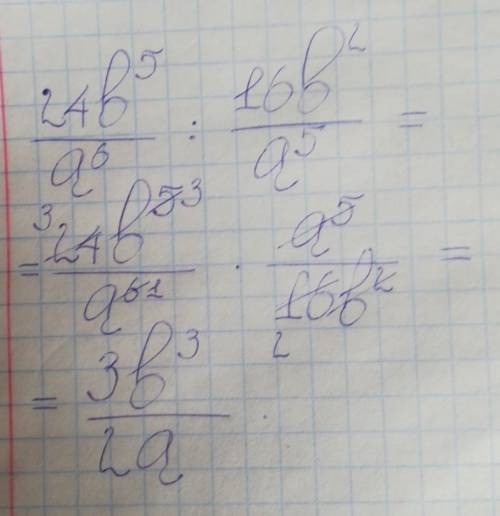 24b⁵/a⁶ : 16b²/a⁵ =
= ³24b⁵³/a⁶¹ · a⁵/16b² ₂ =
= 3b³/2a .